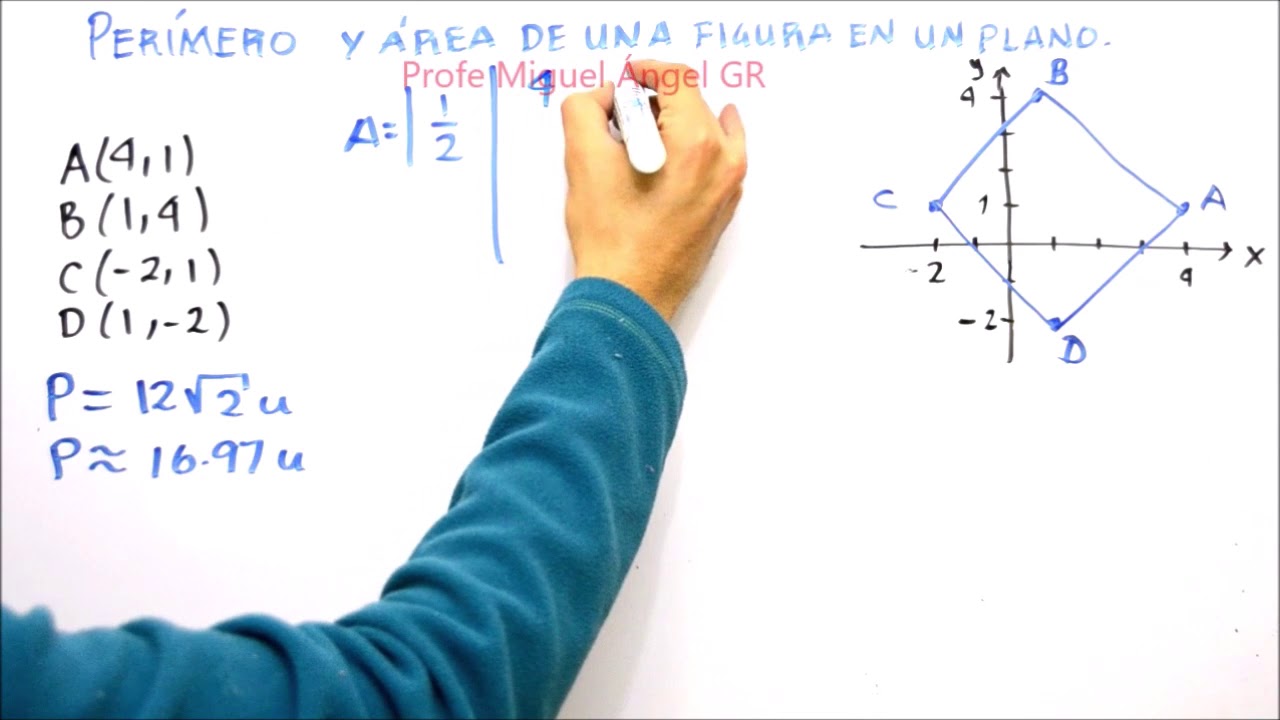 PERÍMERO Y ÁREA DE UNA FIGURA EN UN PLANO.
Profe Miguel Ángel GR
A(4,1)
B(1,4)
C(-2,1)
D(1,-2)
P=12√2 u
P≈16.97 u
A=|1/2| 4
y
B
4
C
1
A
-2
4
x
-2
D